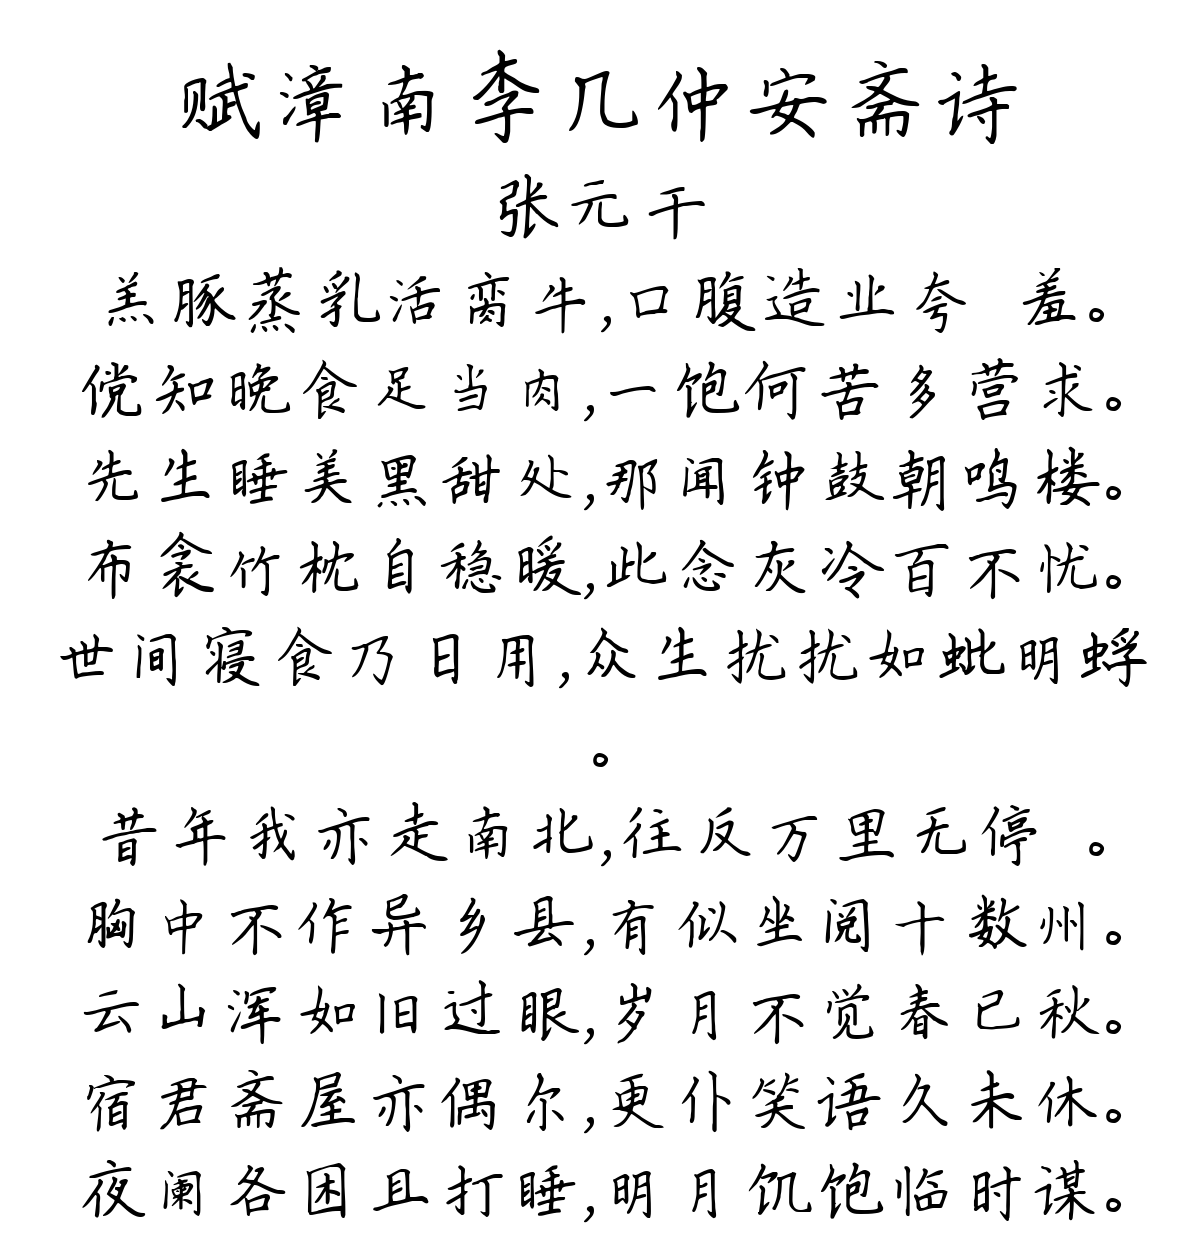 赋漳南李几仲安斋诗
张元干
羔豚蒸乳活脔牛,口腹造业夸 羞。
傥知晚食足当肉,一饱何苦多营求。
先生睡美黑甜处,那闻钟鼓朝鸣楼。
布衾竹枕自稳暖,此念灰冷百不忧。
世间寝食乃日用,众生扰扰如蚍明蜉
。
昔年我亦走南北,往反万里无停 。
胸中不作异乡县,有似坐阅十数州。
云山浑如旧过眼,岁月不觉春已秋。
宿君斋屋亦偶尔,更仆笑语久未休。
夜阑各困且打睡,明月饥饱临时谋。